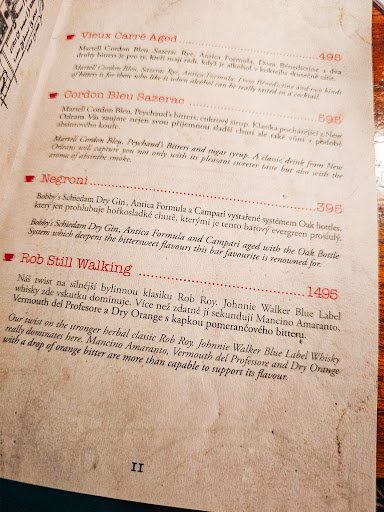 Vieux Carré Aged 495
Martell Cordon Bleu, Sazerac Rye, Antica Formula, Dom Bénedictine a dva
druhy bitters je pro ty, kteří mají rádi, když je alkohol v koktejlu skutečně cítit.
Martell Cordon Bleu, Sazerac Rye, Antica Formula, Dom Bénedictine and two kinds
of bitters is for those who like it when alcohol can be really tasted in a cocktail.
Cordon Bleu Sazerac 595
Martell Cordon Bleu, Peychaud's bitters, cukrový sirup. Klasika pocházející z New
Orleans Vás zaujme nejen svou příjemnou sladší chutí ale také vůní s přídechem
absinthového kouře.
Martell Cordon Bleu, Peychaud's Bitters and sugar syrup. A classic drink from New
Orleans will capture you not only with its pleasant sweeter taste but also with the
aroma of absinthe smoke.
Negroni 395
Bobby's Schiedam Dry Gin, Antica Formula a Campari vystařené systémem Oak bottles,
který jen prohlubuje hořkosladké chutě, kterými je tento barový evergreen proslulý.
Bobby's Schiedam Dry Gin, Antica Formula and Campari aged with the Oak Bottle
System which deepens the bittersweet flavours this bar favourite is renowned for.
Rob Still Walking 1495
Náš twist na silnější bylinnou klasiku Rob Roy. Johnnie Walker Blue Label
whisky zde vskutku dominuje. Více než zdatně jí sekundují Mancino Amaranto,
Vermouth del Profesore a Dry Orange s kapkou pomerančového bitteru.
Our twist on the stronger herbal classic Rob Roy. Johnnie Walker Blue Label Whisky
really dominates here. Mancino Amaranto, Vermouth del Profesore and Dry Orange
with a drop of orange bitter are more than capable to support its flavour.
11